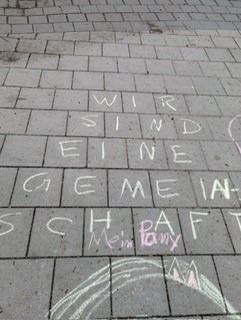 WIR
SIND
EINE
GEMEIN-
SCHAFT
Mein Pony